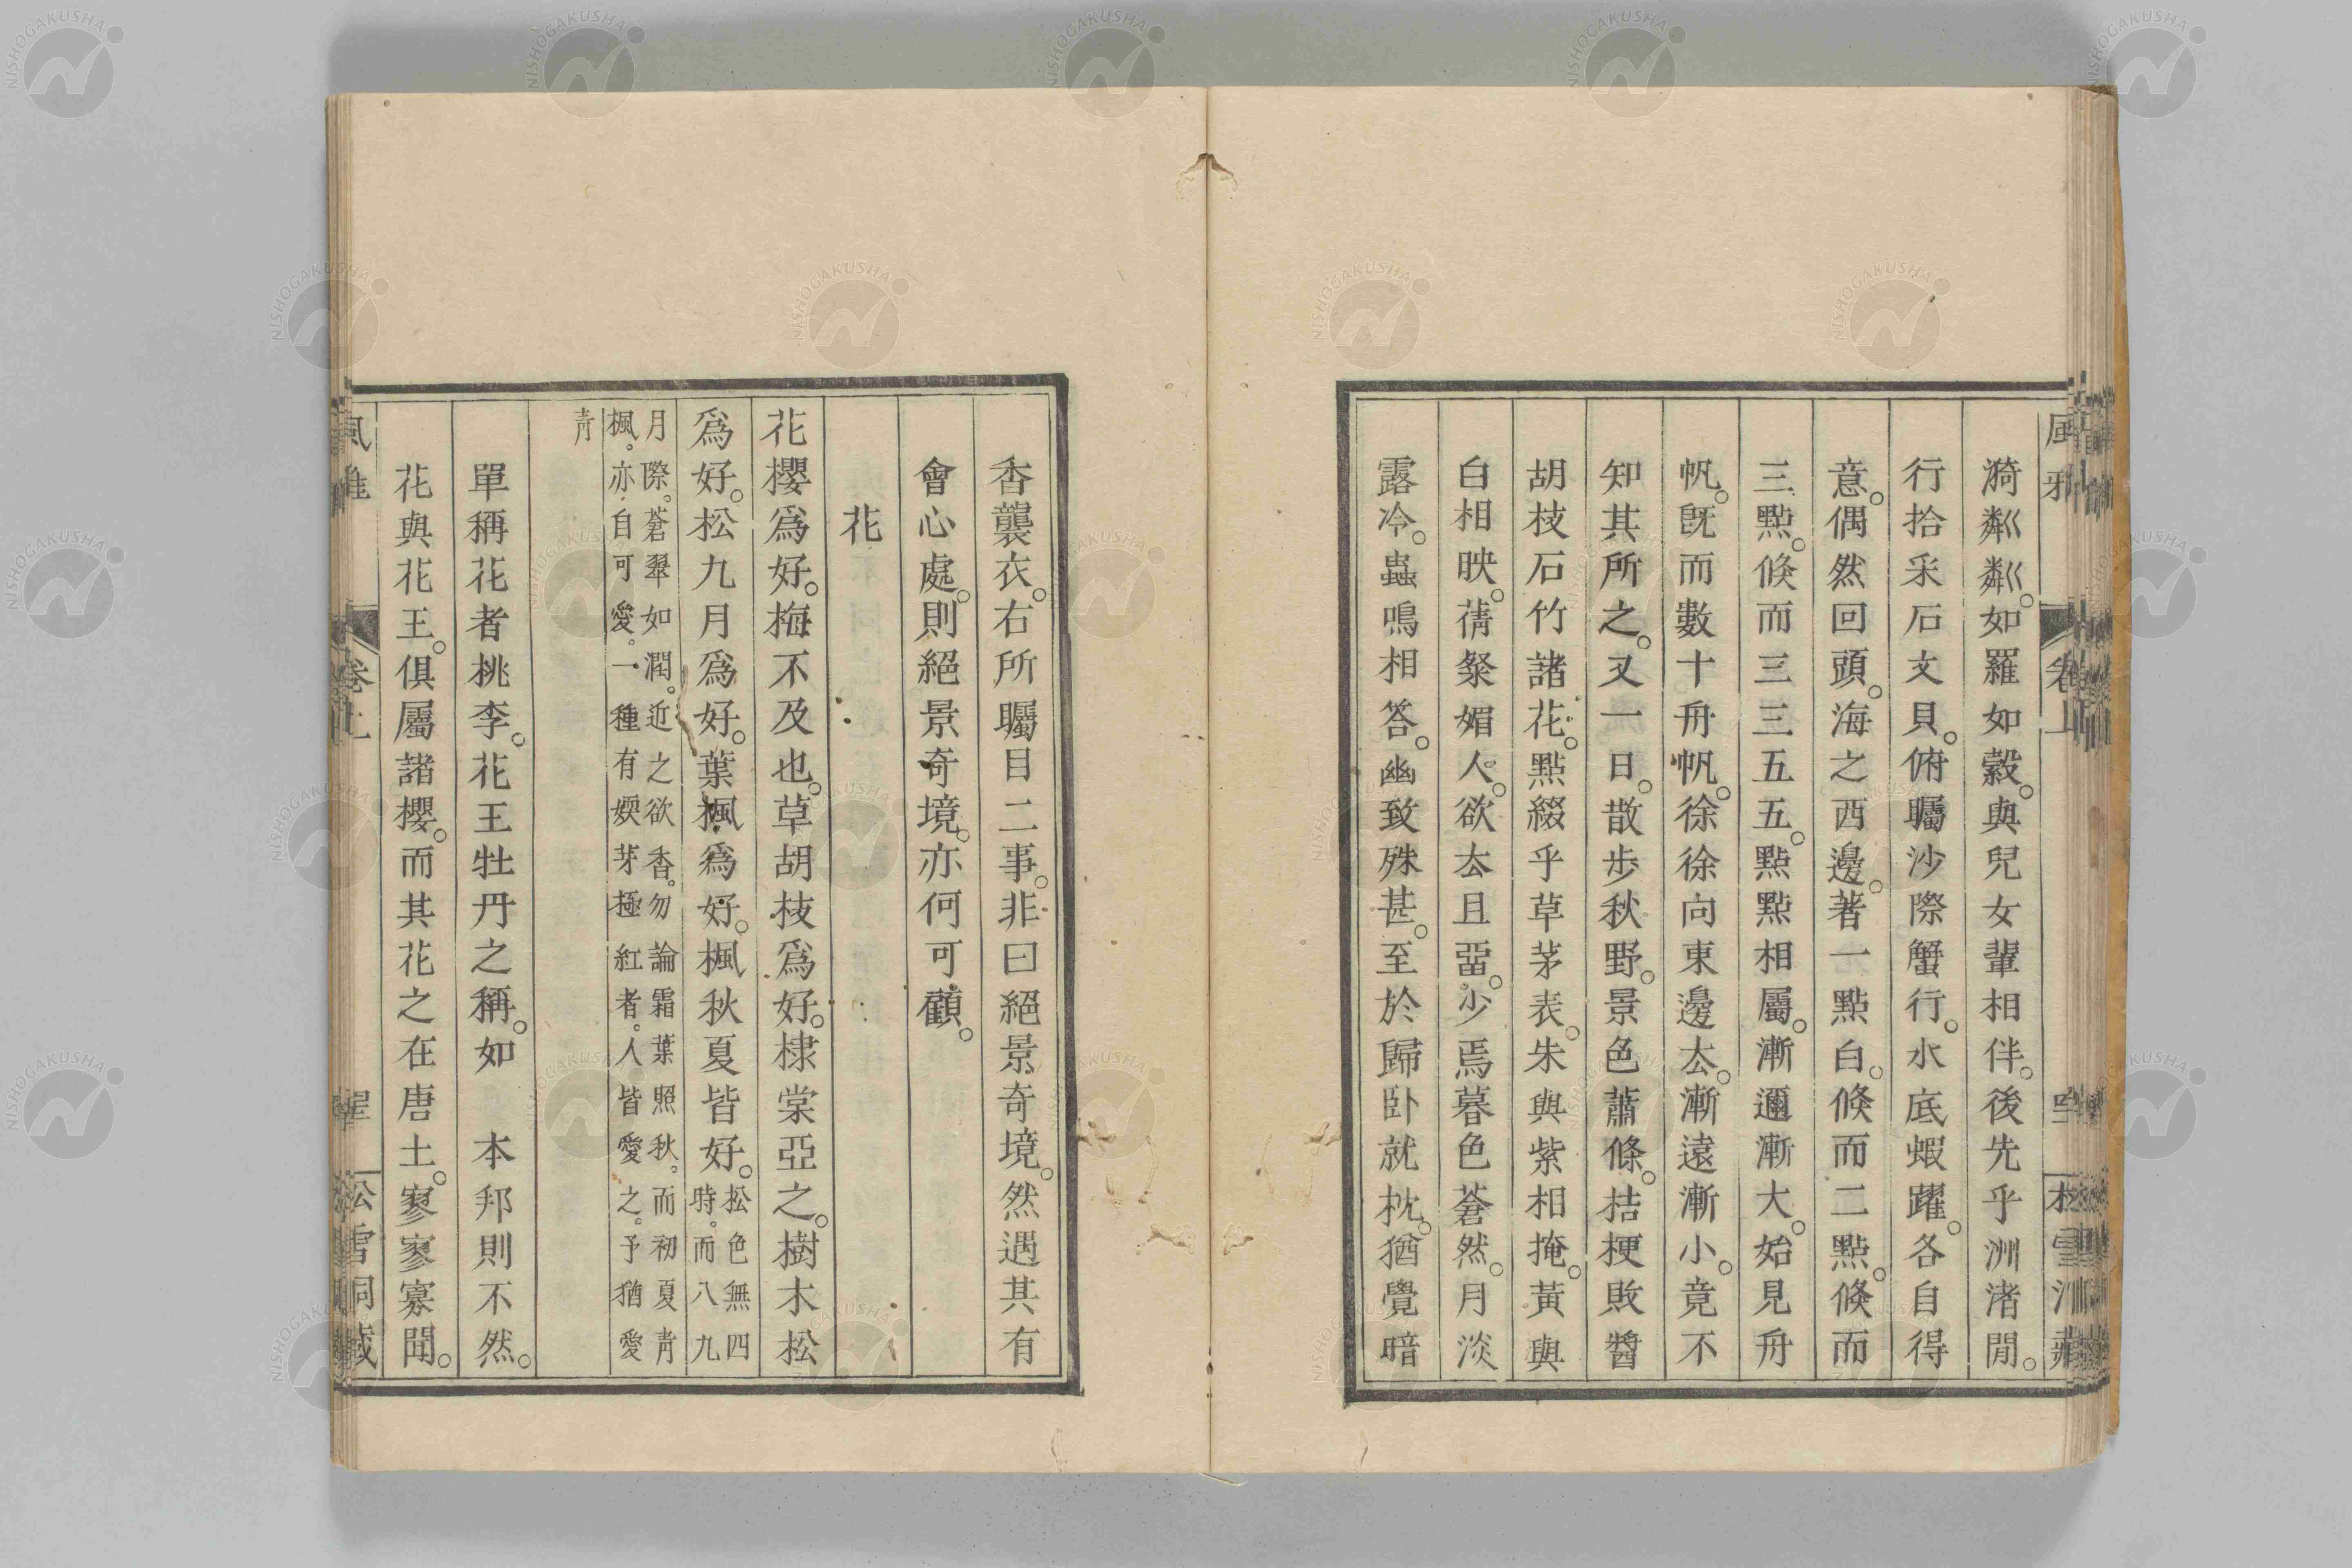 漪粼粼。如羅如縠。與兒女輩相伴。後先乎洲渚閒。
行拾采石文貝。俯矚沙際蟹行。水底蝦躍。各自得
意。偶然回頭。海之西邊。著一點白。倏而二點。倏而
三點。倏而三三五五。點點相屬。漸邇漸大。始見舟
帆。既而數十舟帆。徐徐向東邊去。漸遠漸小。竟不
知其所之。又一日。散步秋野。景色蕭條。桔梗敗醬
胡枝石竹諸花。點綴乎草茅表。朱與紫相掩。黃與
白相映。蒨粲媚人。欲去且畱。少焉暮色蒼然。月淡
露冷。蟲鳴相答。幽致殊甚。至於歸臥就枕。猶覺暗
香襲衣。右所矚目二事。非曰絕景奇境。然遇其有
會心處。則絕景奇境。亦何可顧。
花
花櫻爲好。梅不及也。草胡枝爲好。棣棠亞之。樹木松
爲好。松九月爲好。葉楓爲好。楓秋夏皆好。松色無四
時。而八九
月際。蒼翠如潤。近之欲香。勿論霜葉照秋。而初夏靑
楓。亦自可愛。一種有媆芽極紅者。人皆愛之。予猶愛
靑
單稱花者桃李。花王牡丹之稱。如 本邦則不然。
花與花王。俱屬諸櫻。而其花之在唐土。寥寥寡聞。
卷上
松雪洞藏